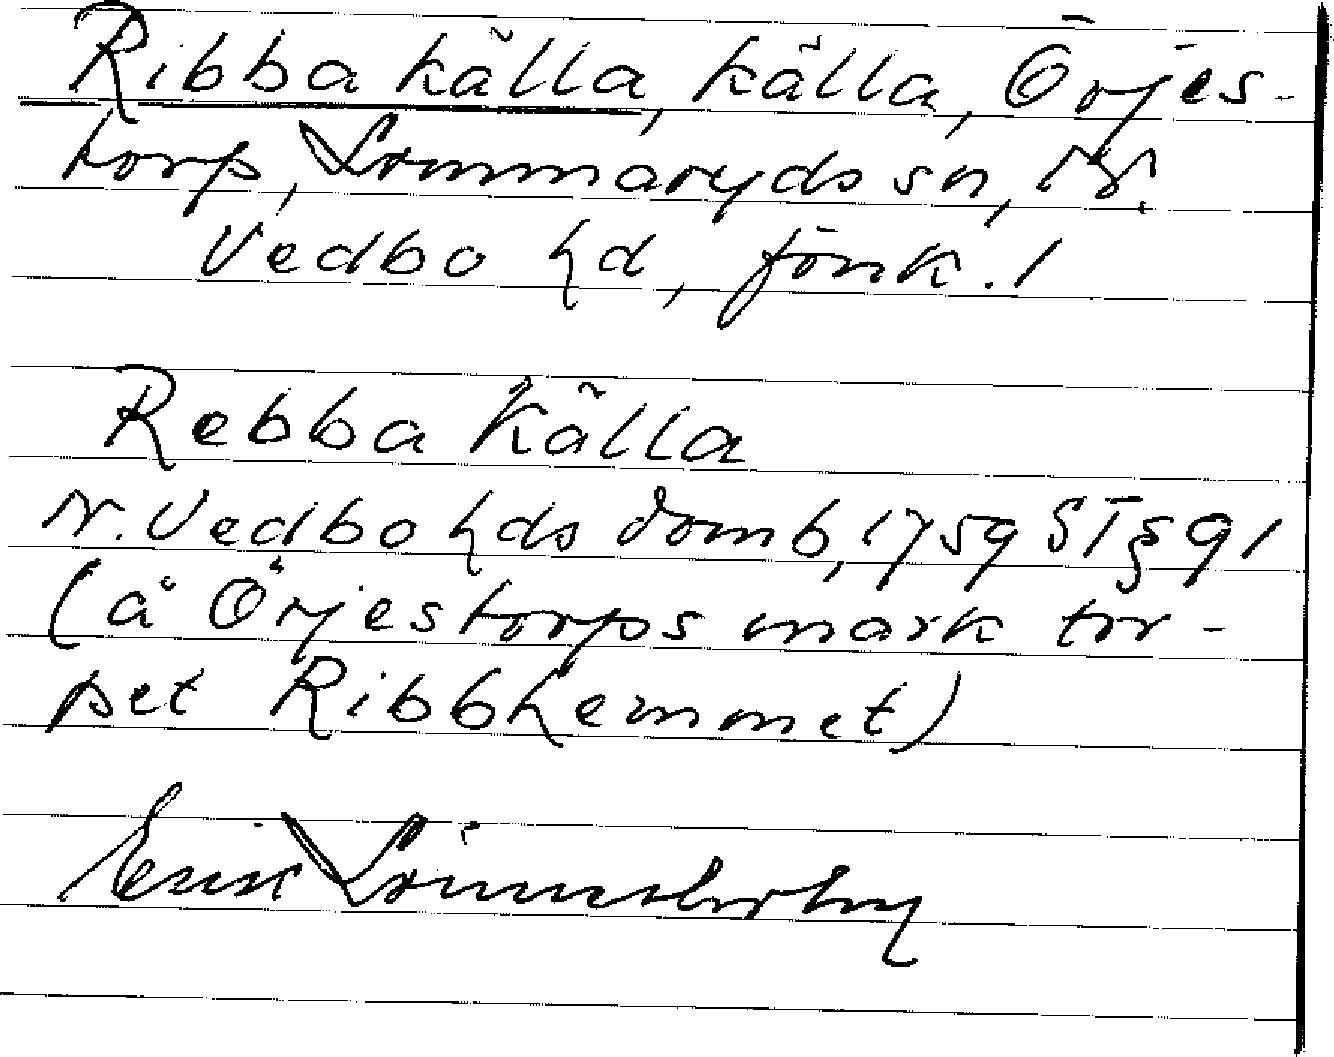 Ribba källa, källa, Örjes-
torp, Lommaryds sn, N.
Vedbo hd, Jönk. l
Rebba Källa
N. Vedbo hds domb, 1759 ST § 91
(å Örjestorps mark tor-
pet Ribbhemmet)
Erik